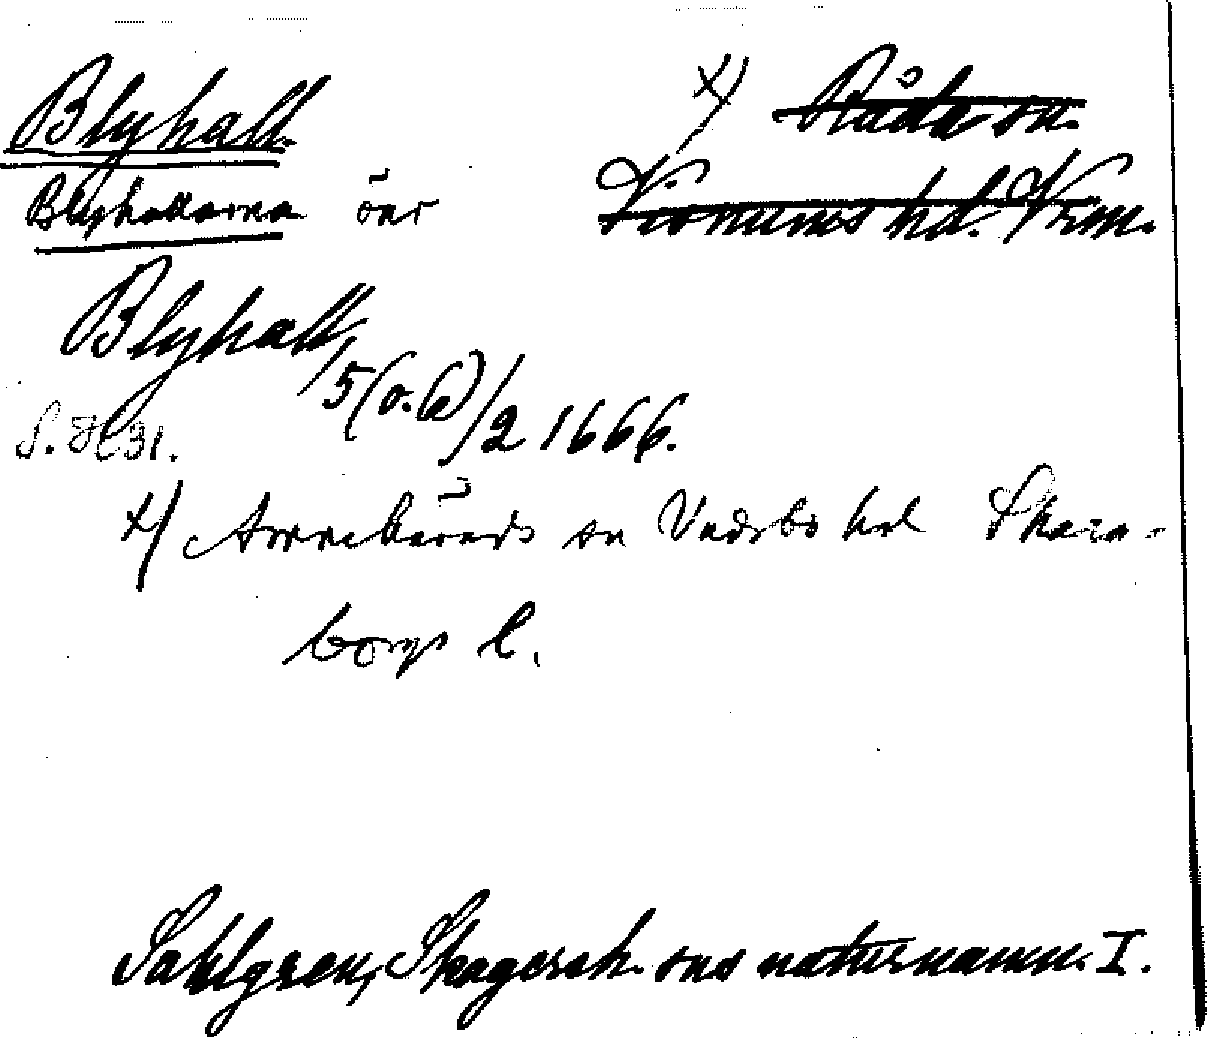 Blyhall. x) Råda sn.
Blyhallarna öar Visnums hd. Vrm.
Blyhall,
/5(o.6)/2 1666.
S. 31.
x) Amnehärads sn Vadsbo hd Skara-
borgs l.
Sahlgren, Skagersh. sns naturnamn. I.